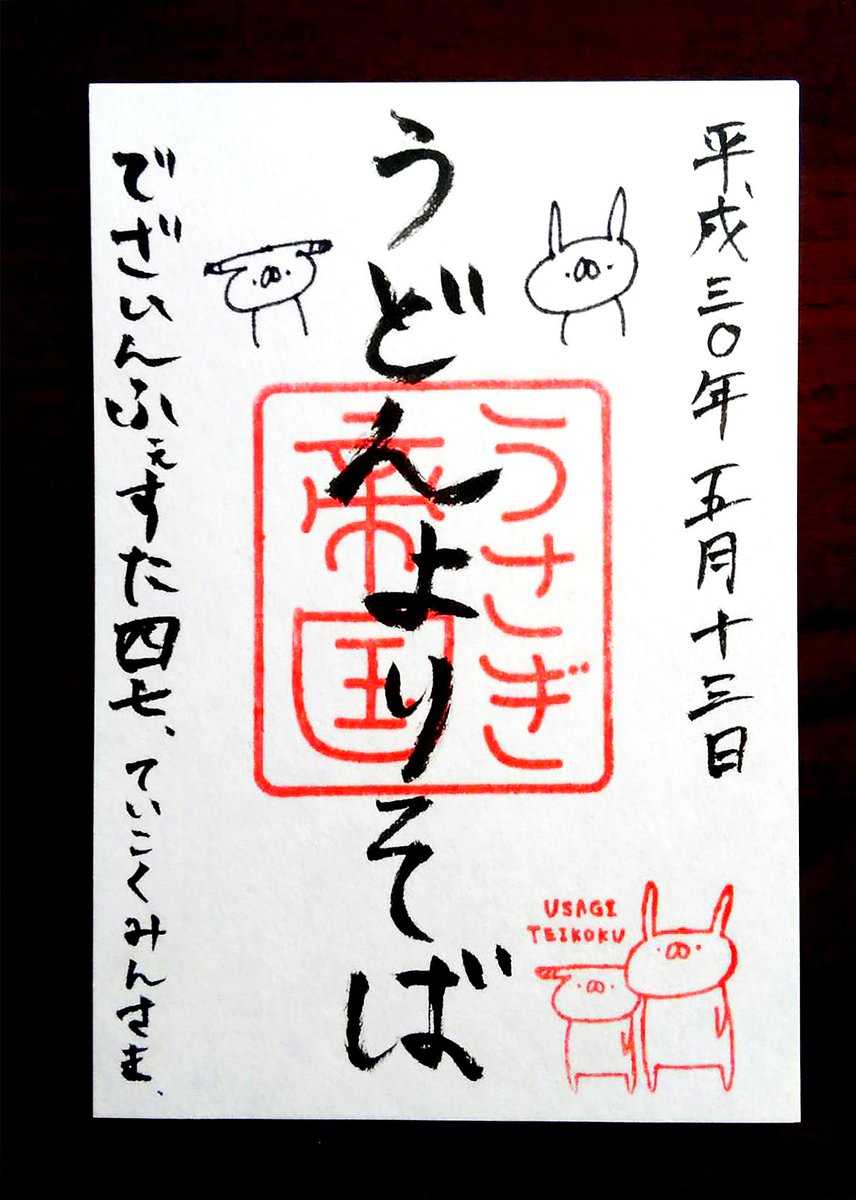 平成三〇年 五月十三日
うどんよりそば
うさぎ
帝国
でざいんふぇすた四七、ていこくみんさま、
USAGI
TEIKOKU